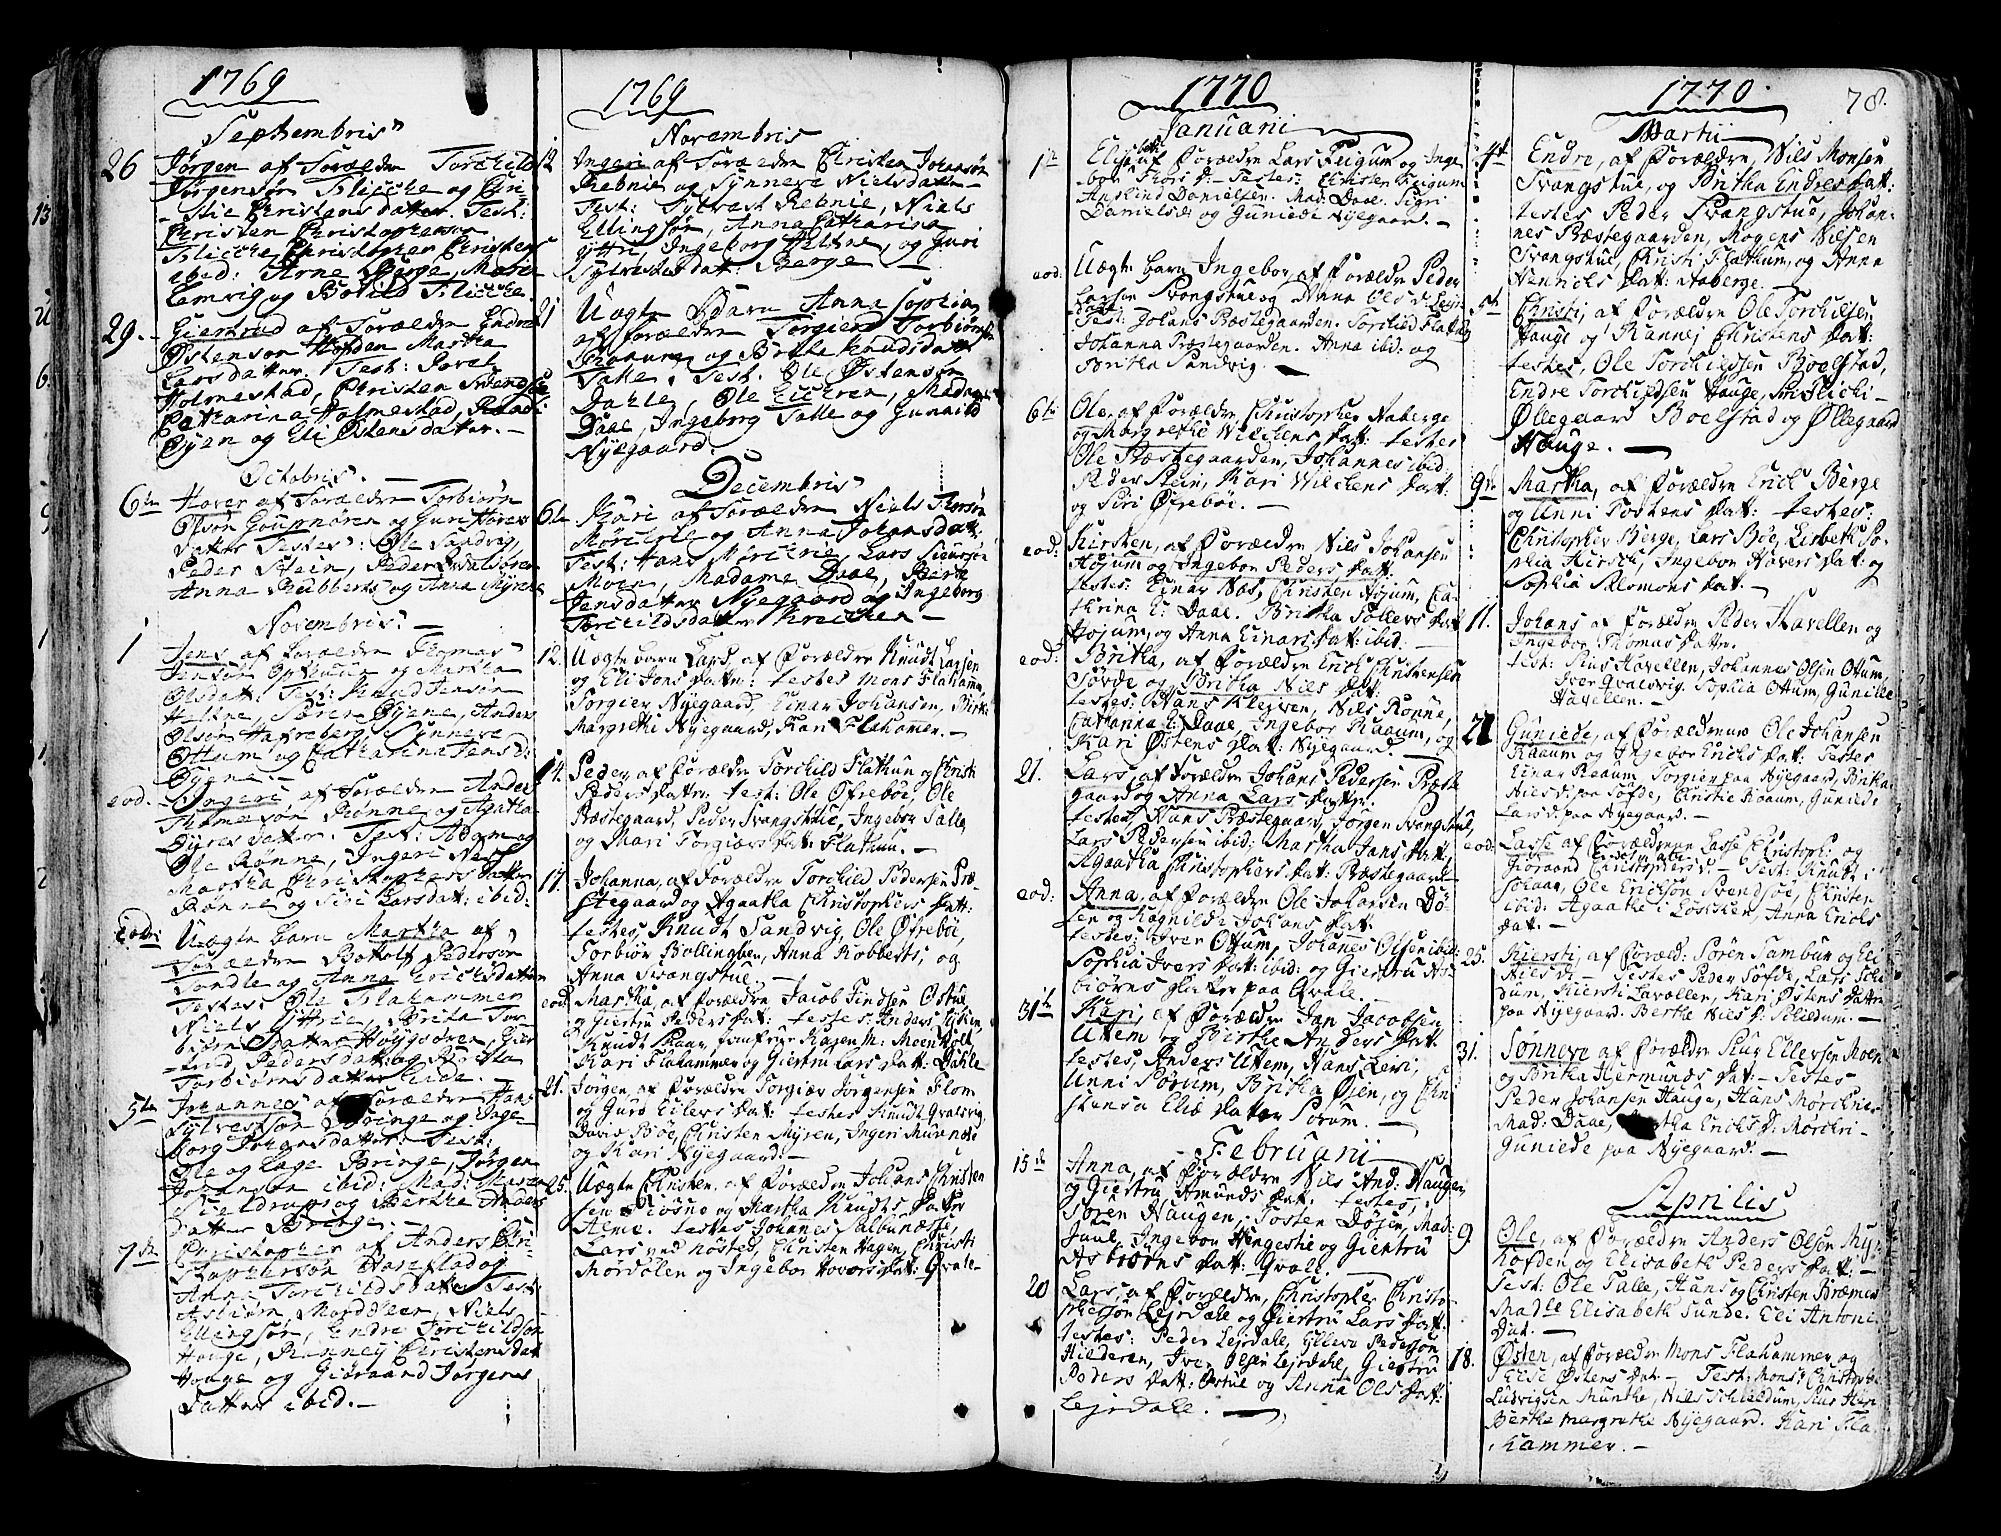 1769
Septembris
26 Jörgen af Forældre Torchild
Jörgensör Flicche og Chri
stie Christens datter. Test:
Christen Christophersøn
Flicche, Christopher Christens
ibid: Arne Berge, Maren
Lemvig og Bothild Flicche.
29. Giertrud af Forældre Endre
Østensøn Hofden Martha
Larsdatter. Test: Povel
Holmestad, Christen Svends
Catharina Holmestad, Randi
Øyen og Eli Østens datter.
Octobris.
6te Haver af Forældre Torbiørn
Olsøn Goupnören og Guri Hövers
datter Testes: Ole Sandvig,
Peder Stein, Peder Qvalsören
Anna Rubberts og Anna Myrene
Novembris
1 Jens af Forældre Thomas
Jensön Opthuun og Martha
Olsdatt: Test: Knud Jensön
Heltne, Sören Øyene, Anders
Olsön Hafreberg, Synneve
Ottum og Catharina Jens d:
Øyene.
eod. Ingeri af Forældre Anders
Thomesön Rönne og Agatha
Test: Adam og
Ole Rönne, Ingeri Nes
Martha Christophers datter
Rönne og Siri Lars dat: ibid:
eod: Uægte barn Martha af
Forældre Bottolf Pedersør
og Anna Erichsdatter
Testes: Ole Flahammer
Niels Yttrie, Brita Tor
biörns datter Høygsören, Gier
trud Peders datt: og Britha
Torbiörns datter Eide.
5te Johannes af Forældre Hans
Sylvestsör Bringe og Inge
borg Johans datter. Test:
Ole og Lage Bringe, Jörgen
Johansön ibid: Mad: Maren
og Berthe Anders
datter Bringe.
7de Christopher af Anders Chri
stophersön Haveflad og
Anna Torchilds datter Test:
Asbiörn Niels
Ellingsör, Endre Torchildsön
Houge, Ranney Christens dat
Houge og Gioraand Jörgens
datter ibid.
1769
Novembris
12 Ingeri af Forældre Christen Johansön
Rebnie og Synneve Nielsdatter
Test: Sylvest Rebnie, Niels
Ellingsør, Anna Catharina
Yttri, Ingeborg Heltne, og Guri
Sylvesters datt: Berge
21 Uægte Barn Anna Sophia
af Forældre Torgiend Torbiörns
Raaum og Brita Knudsdatt
Talle. Test. Ole Østensör
Dahle, Ole Eichren, Madame
Daae, Ingeborg Talle og Gunnild
Nyegaard.
Decembris
6te Kari af Forældre Niels Thorsön
Mörchrie og Anna Johansdatt.
Test: Hans Mörchrie, Lars Siursön
Moen, Madame Daae, Berte
Jensdatter Nyegaard og Ingeborg
Torchildsdatter Krechen
12. Uægte barn Lars, af Forældre Knudt Larsen
og Eli Jons datter: testes Mons Flahamer
Torgier Nyegaard, Einar Johansen, Birte
Margrethe Nyegaard, Kari Flahamer.
14. Peder, af Forældre Torchild Flathun og Christi
Peders datter. test: Ole Ofrebøe, Ole
Præstegaard, Peder Svangstue, Ingebor Talle
og Mari Torgiers dat: Flathun.
17. Johanna, af Forældre Torchild Pedersen Præ
stegaard og Agaatha Christophers datt:
testes Knudt Sandvig, Ole Øfrebøe,
Torbiör Bollingben, Anna Robberts, og
Anna Svangstue
eod Martha, af Forældre Jacob Findsen Østue
og Giertru Peders dat: testes: Anders
Knudt Skaar, Jomfrue Karen M: Meenholt
Kari Flahammer og Giertru Lars datt: Dahle
21. Jörgen, af Forældre Torgier Jorgensen Flom
og Guro Ellers dat: testes Knudt Qvalsvig,
Davie Böe, Christen Myren, Ingeri Murnæse
og Kari Nyegaard.
25. Uægte Christen, af Forældre Johans Christen
sen Kiösne og Martha Knudts datter
Alme. testes Johannes Salbunæsse,
Lars ved nösted, Christen Hagen, Christi
Mordölen og Ingebor Hovers dat: Qvale
1770
Januarii
1te Elisabeth af Forældre Lars Feigum og Inge
bor Thors d: Testes: Christen Feigum
Anskind Danielsen, Mad: Daae, Sigri
Daniels d: og Guniede Nyegaard.
eod: Uægte barn Ingebor, af Forældre Peder
Larsen Svangstue og Anna Ols d:
Test: Johans Præstegaarden. Torchild Flathun
Johanna Præstegaarden. Anna ibid: og
Britha Sandvig.
6te Ole, af Forældre Christopher Naberge
og Margrethe Wilchens dat: testes
Ole Præstegaarden, Johannes ibid:
Peder Stein, Kari Wilchens dat:
og Siri Øfrebøe.
eod: Kirsten, af Forældre Nils Johansen
Høyum og Ingebor Peders dat:
testes: Einar Næs, Christen Høyum, Ca-
thrina E: Daae. Britha Tollevs dat
Høyum, og Anna Einars dat: ibid:
eod: Britha, af Forældre Erich Christensen
Sörde og Britha Nils dat:
testes: Hans Kleiven, Nils Rønne,
Cathanna E: Daae, Ingebor Raaum, og
Kari Østens dat: Nyegaard
21. Lars, af Forældre Johans Pedersen Præste
gaard og Anna Lars datter.
testes, Hans Præstegaard, Jörgen Svangstue,
Lars Pedersen ibid: Martha Jans dat:
Agaatha Christophers dat: Præstegaard
eod: Anna, af Forældre Ole Johansen Dö-
sen og Ragnilde Johans dat:
testes: Iver Ottum, Johanes Olsen ibid:
Sophia Ivers dat: ibid: og Giertru As
biörns datter paa Qvale.
31te Kari, af Forældre Jan Jacobsen
Uttem og Birthe Anders dat:
testes, Anders Uttem, Hans Leri,
Unni Sörum, Britha Øsen, og Chri
stensa Elie datter Sorum.
Februarii
15de Anna, af Forældre Nils And: Haugen
og Giertru Amunds dat: testes,
Sören Haugen, Tosten Dösen, Mad:
Juul, Ingebor Hengestie og Giertru
Asbiörns dat: Qvale.
20 Lars, af Forældre, Christopher Christo-
phersön Lejrdale og Giertru Lars dat
testes: Peder Lejrdale, Ellevo Pedersön
Hilderen, Iver Olsen Lejrdale, Giertru
Peders dat: Østue og Anna Ols dat:
Lejrdale.
1770.
78.
Martii
4de Endre, af Forældre, Nils Monsen
Svangstue, og Britha Endres dat:
testes Peder Svangstue, Johan-
nes Præstegaarden, Mogens Nilsen
Svangstue, Christi Flathum, og Anna
Henrichs dat: Aaberge.
5te Christi, af Forældre Ole Torchilsen
Hauge og Rannej Christens dat:
testes, Ole Torchildsen Boelstad,
Endre Torchildsen Hauge, Siri Flichi
Øllegaard Boelstad og Øllegaard
Hauge.
9de Martha, af Forældre Erich Berge
og Unni Tostens dat: testes:
Christopher Berge, Lars Böe, Lisbeth So-
phia Hirsch, Ingebor Havers dat: og
Sophia Salomons dat:
11. Johans af Forældre Peder Havellen og
Ingebor Thomas datter.
test: Siur Havellen, Johannes Olsen Ottum,
Iver Qvalsvig, Sophia Ottum, Gunilde
Havellen.
21 Guniede, af Forældrenne Ole Johansen
Raaum og Ingebor Erichs dat: Testes
Einar Raaum, Torgier paa Nyegaard, Britha
Niels d: paa Söfde, Christie Roaum, Guniede
Lars d: paa Nyegaard.
eod: Lasse af Forældrene Lasse Christoph: og
Gioraand Christophers d: Test: Knudt
Ole Erichsön Svendsöe, Christen
ibid: Agaathe i Løschen, Anna Erichs
dat.
25. Kiersti, af Foræld: Sören Sambun og Eli
Niels d: Testes Peder Söfde, Lars Schi
dum, Kiersti Lavallen, Kari Østens datter
paa Nyegaard. Berthe Niels d: Skieldum.
31. Sönneve af Forældre Siur Ellersön Moen
og Britha Hiermunds dat: Testes
Peder Johansen Hauge, Hans Mörchrie
Mad: Daae, Martha Erichs d: Mörchri
Guniede paa Nyegaard:
Aprilis
9. Ole, af Forældre Anders Olsön Myr
hofden og Elisabeth Peders dat:
Test: Ole Talle, Hans og Christen Bræmer
Madle Elisabeth Sunde. Eli Antoni
Dat.
18. Østen, af Forældre Mons Flahammer og
Else Østens dat. Test: Mons Christoph
Ludvigsen Munthe, Nils Schieldum, Siur
Berthe Margrethe Nyegaard. Kari Fla
hammer.